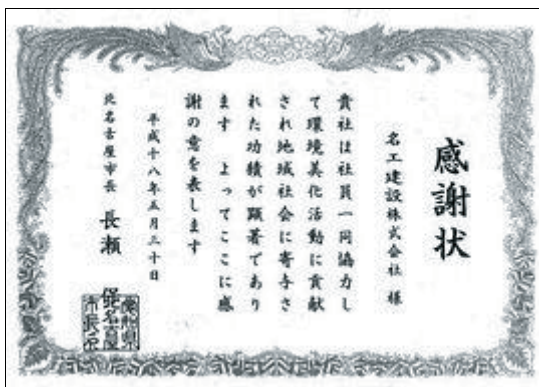 感謝状
名工建設株式会社 様
貴社は社員一同協力し
て環境美化活動に貢献
され地域社会に寄与さ
れた功績が顕著であり
ます よってここに感
謝の意を表します
平成十八年五月三十日
北名古屋市長 長瀬 保